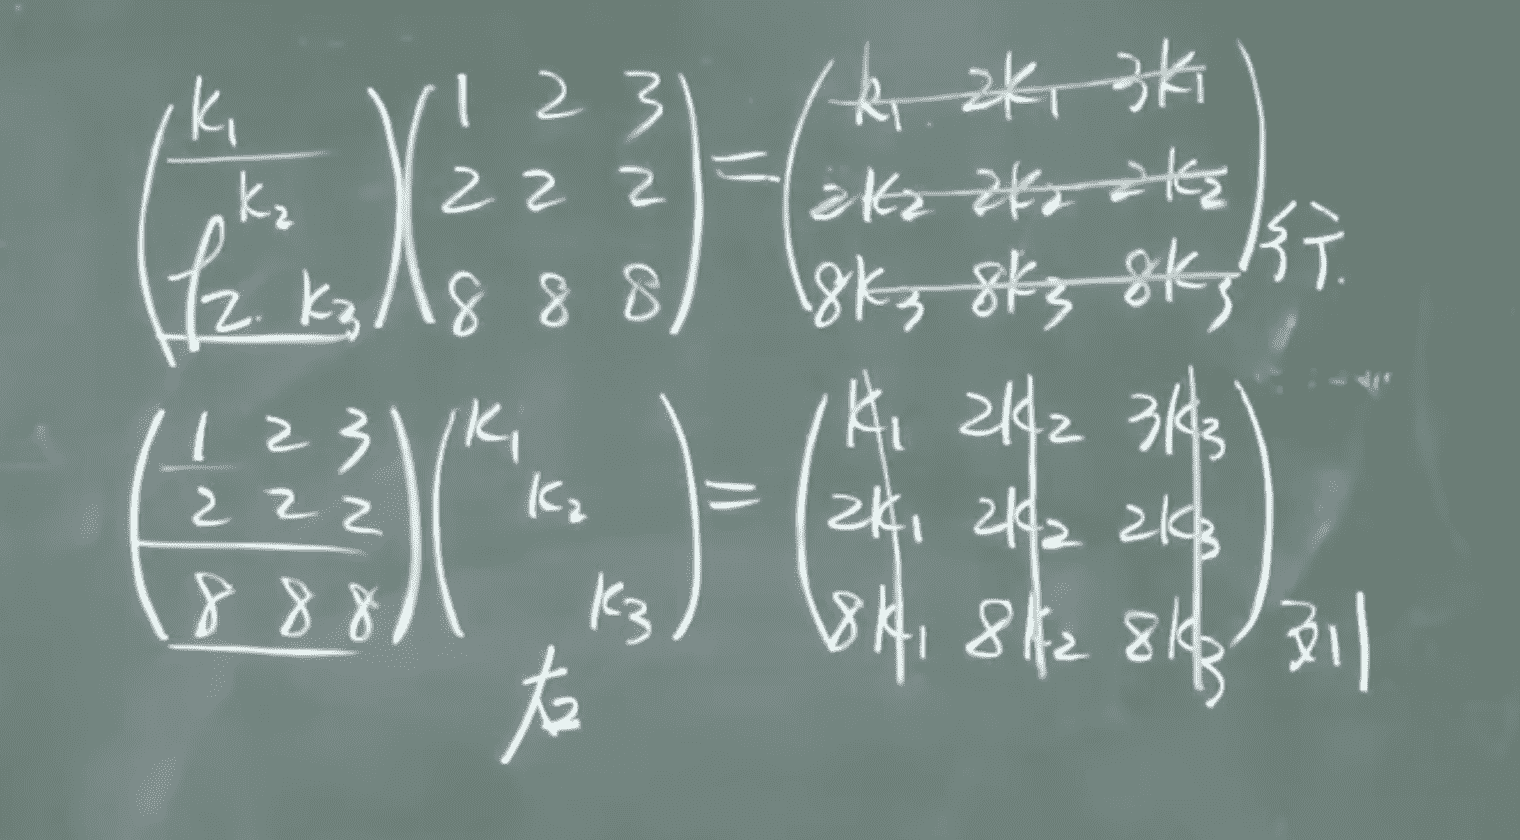 (k₁ k₂ k₃)(1 2 3 2 2 2 8 8 8) = (k₁ 2k₁ 3k₁ 2k₂ 2k₂ 2k₂ 8k₃ 8k₃ 8k₃) 行
左
(1 2 3 2 2 2 8 8 8)(k₁ k₂ k₃) = (k₁ 2k₂ 3k₃ 2k₁ 2k₂ 2k₃ 8k₁ 8k₂ 8k₃) 列
右